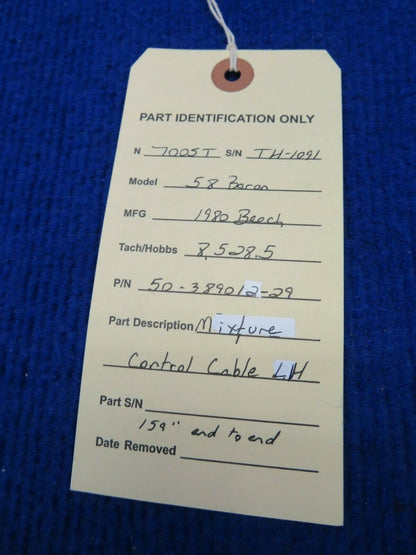 PART IDENTIFICATION ONLY
N 7005T S/N TH-1091
Model 58 Baron
MFG 1980 Beech
Tach/Hobbs 8,528.5
P/N 50-389012-29
Part Description Mixture
Control Cable LH
Part S/N
159" end to end
Date Removed